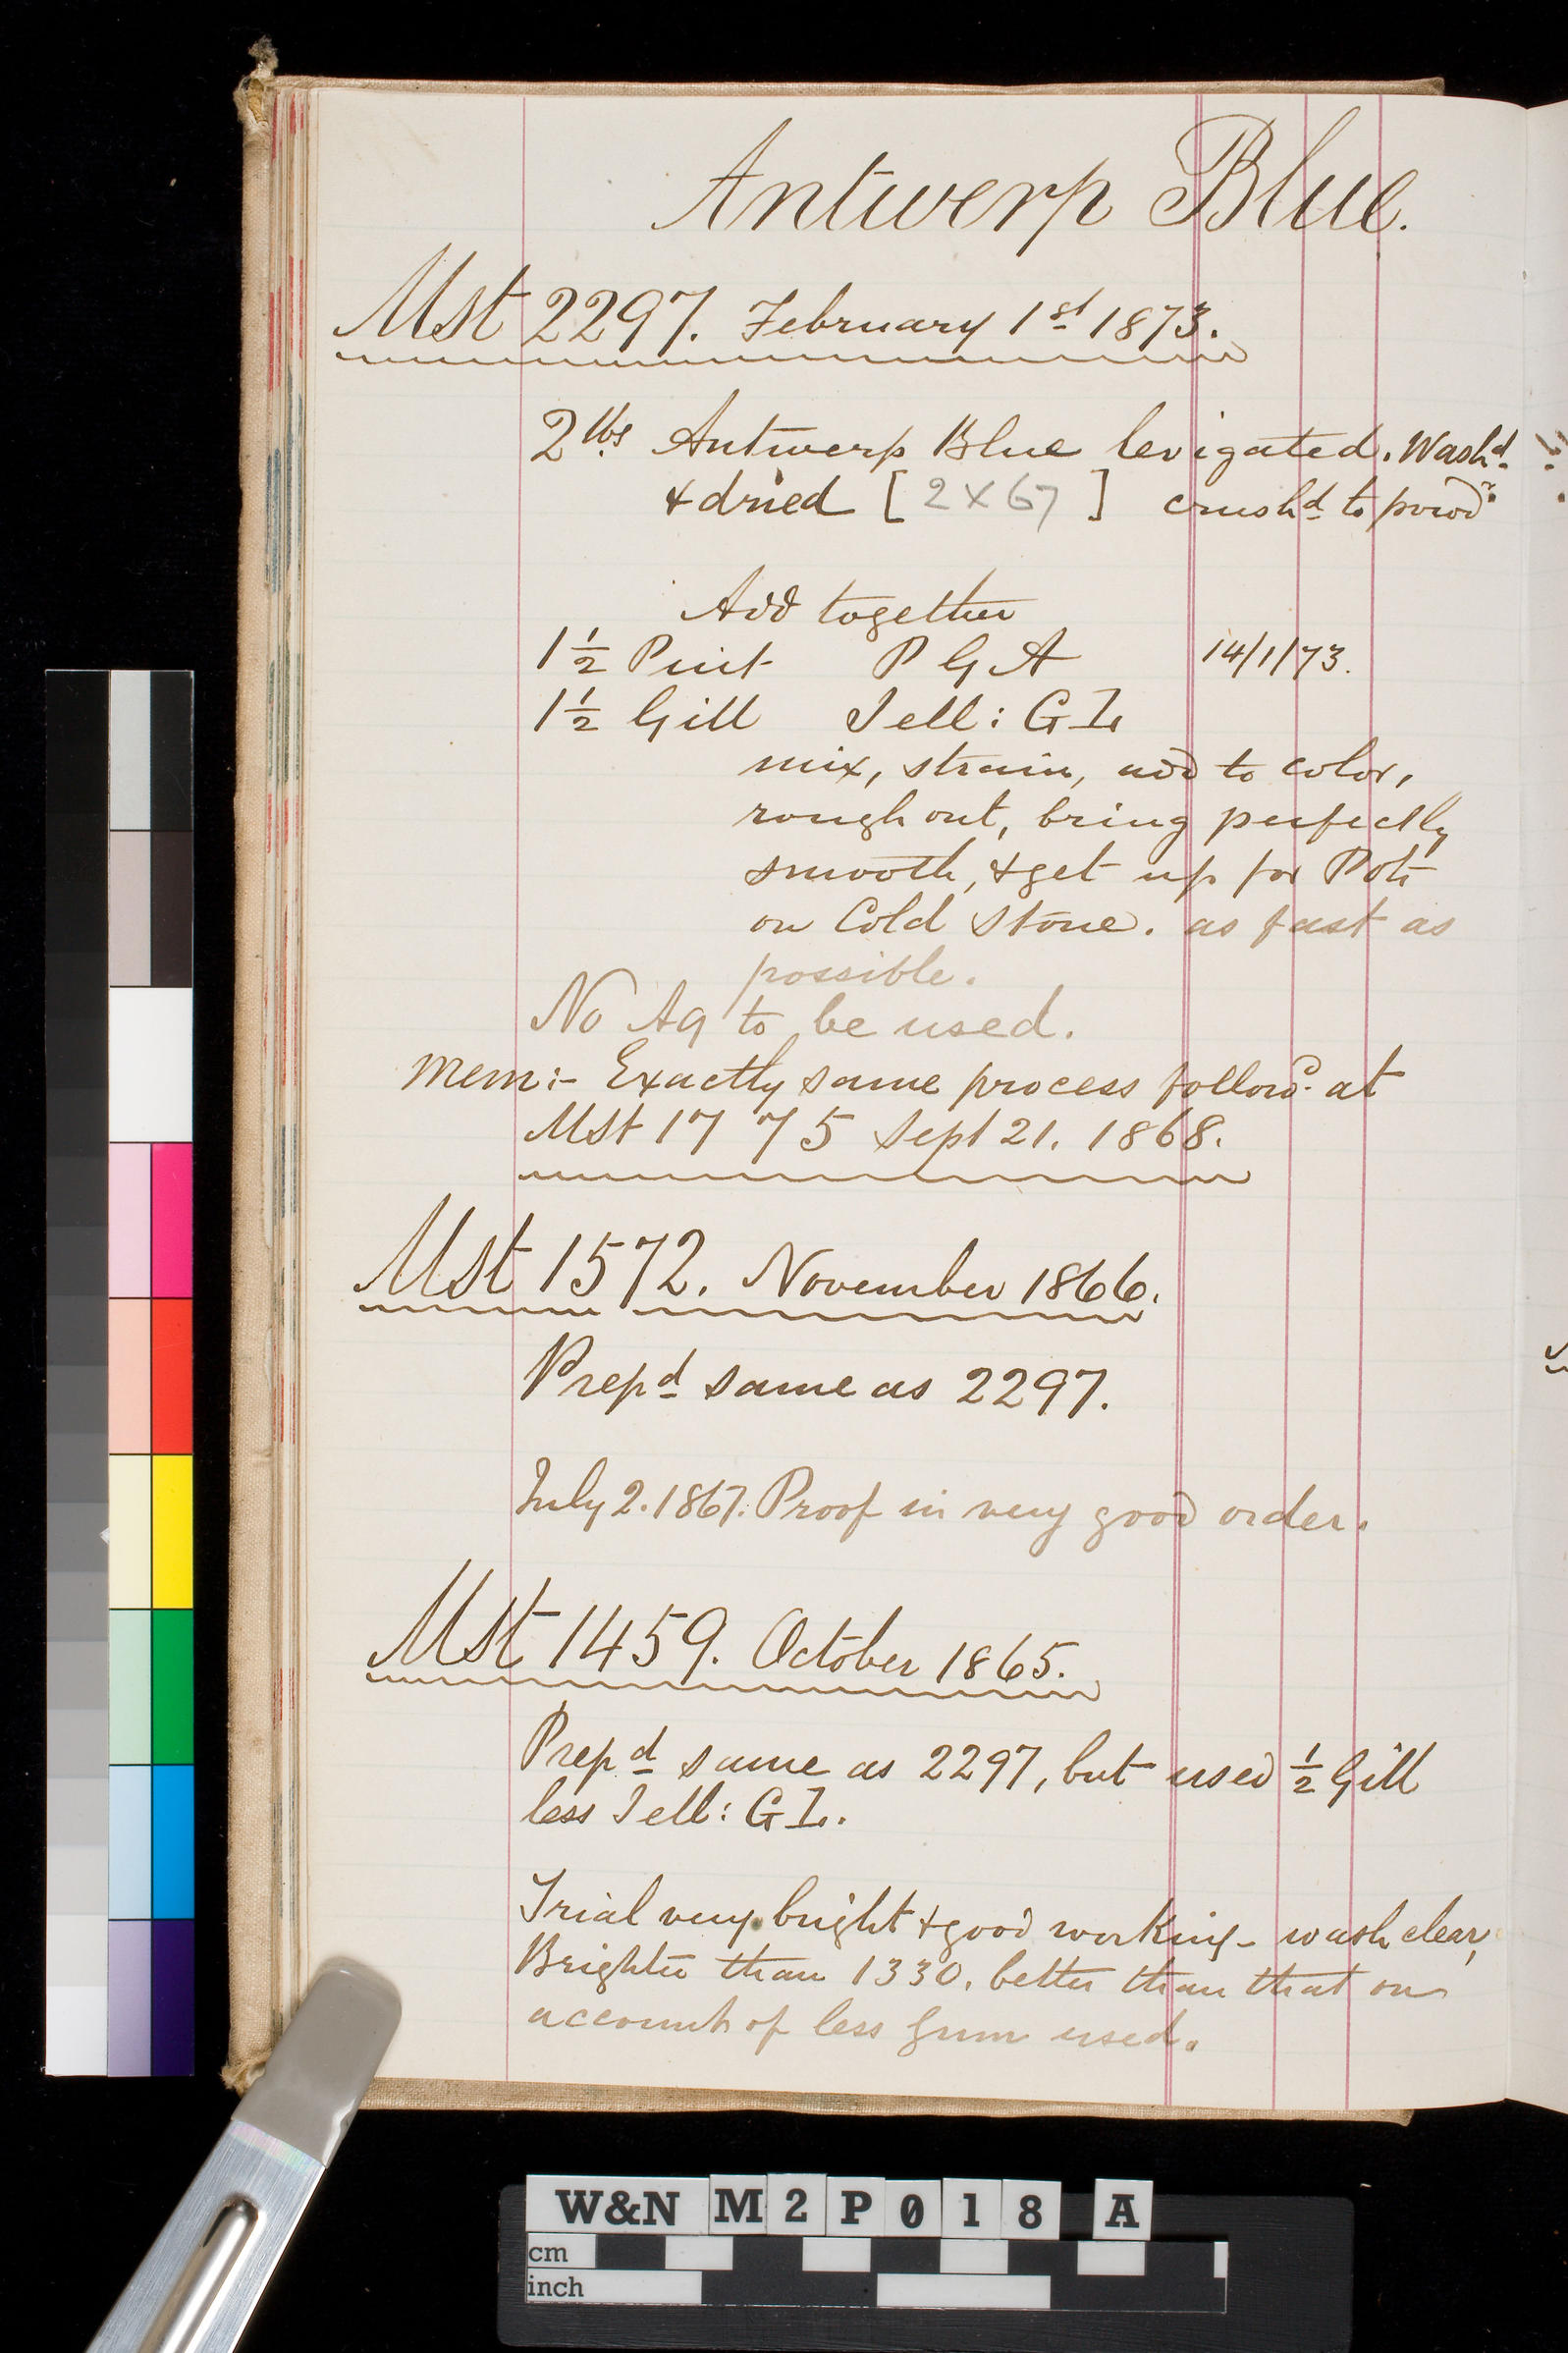 Antwerp Blue.
Mst 2297. February 1st 1873.
2 lbs Antwerp Blue levigated. Washd
& dried [ 2 X 67 ] crushd to powdr
Add together
1½ Pint P G A 14/1/73.
1½ Gill Jell: G I.
mix, strain, add to color,
rough out, bring perfectly
smooth, & get up for Pots
on Cold Stone. as fast as
possible.
No Aq to be used.
Mem:- Exactly same process followd at
Mst 1775 Sept 21. 1868.
Mst 1572. November 1866.
Prepd same as 2297.
July 2. 1867. Proof in very good order.
Mst 1459. October 1865.
Prepd same as 2297, but used ½ Gill
less Jell: G I.
Trial very bright & good working - wash clear,
Brighter than 1330. better than that on
account of less Gum used.
W&N M2P018 A
cm
inch